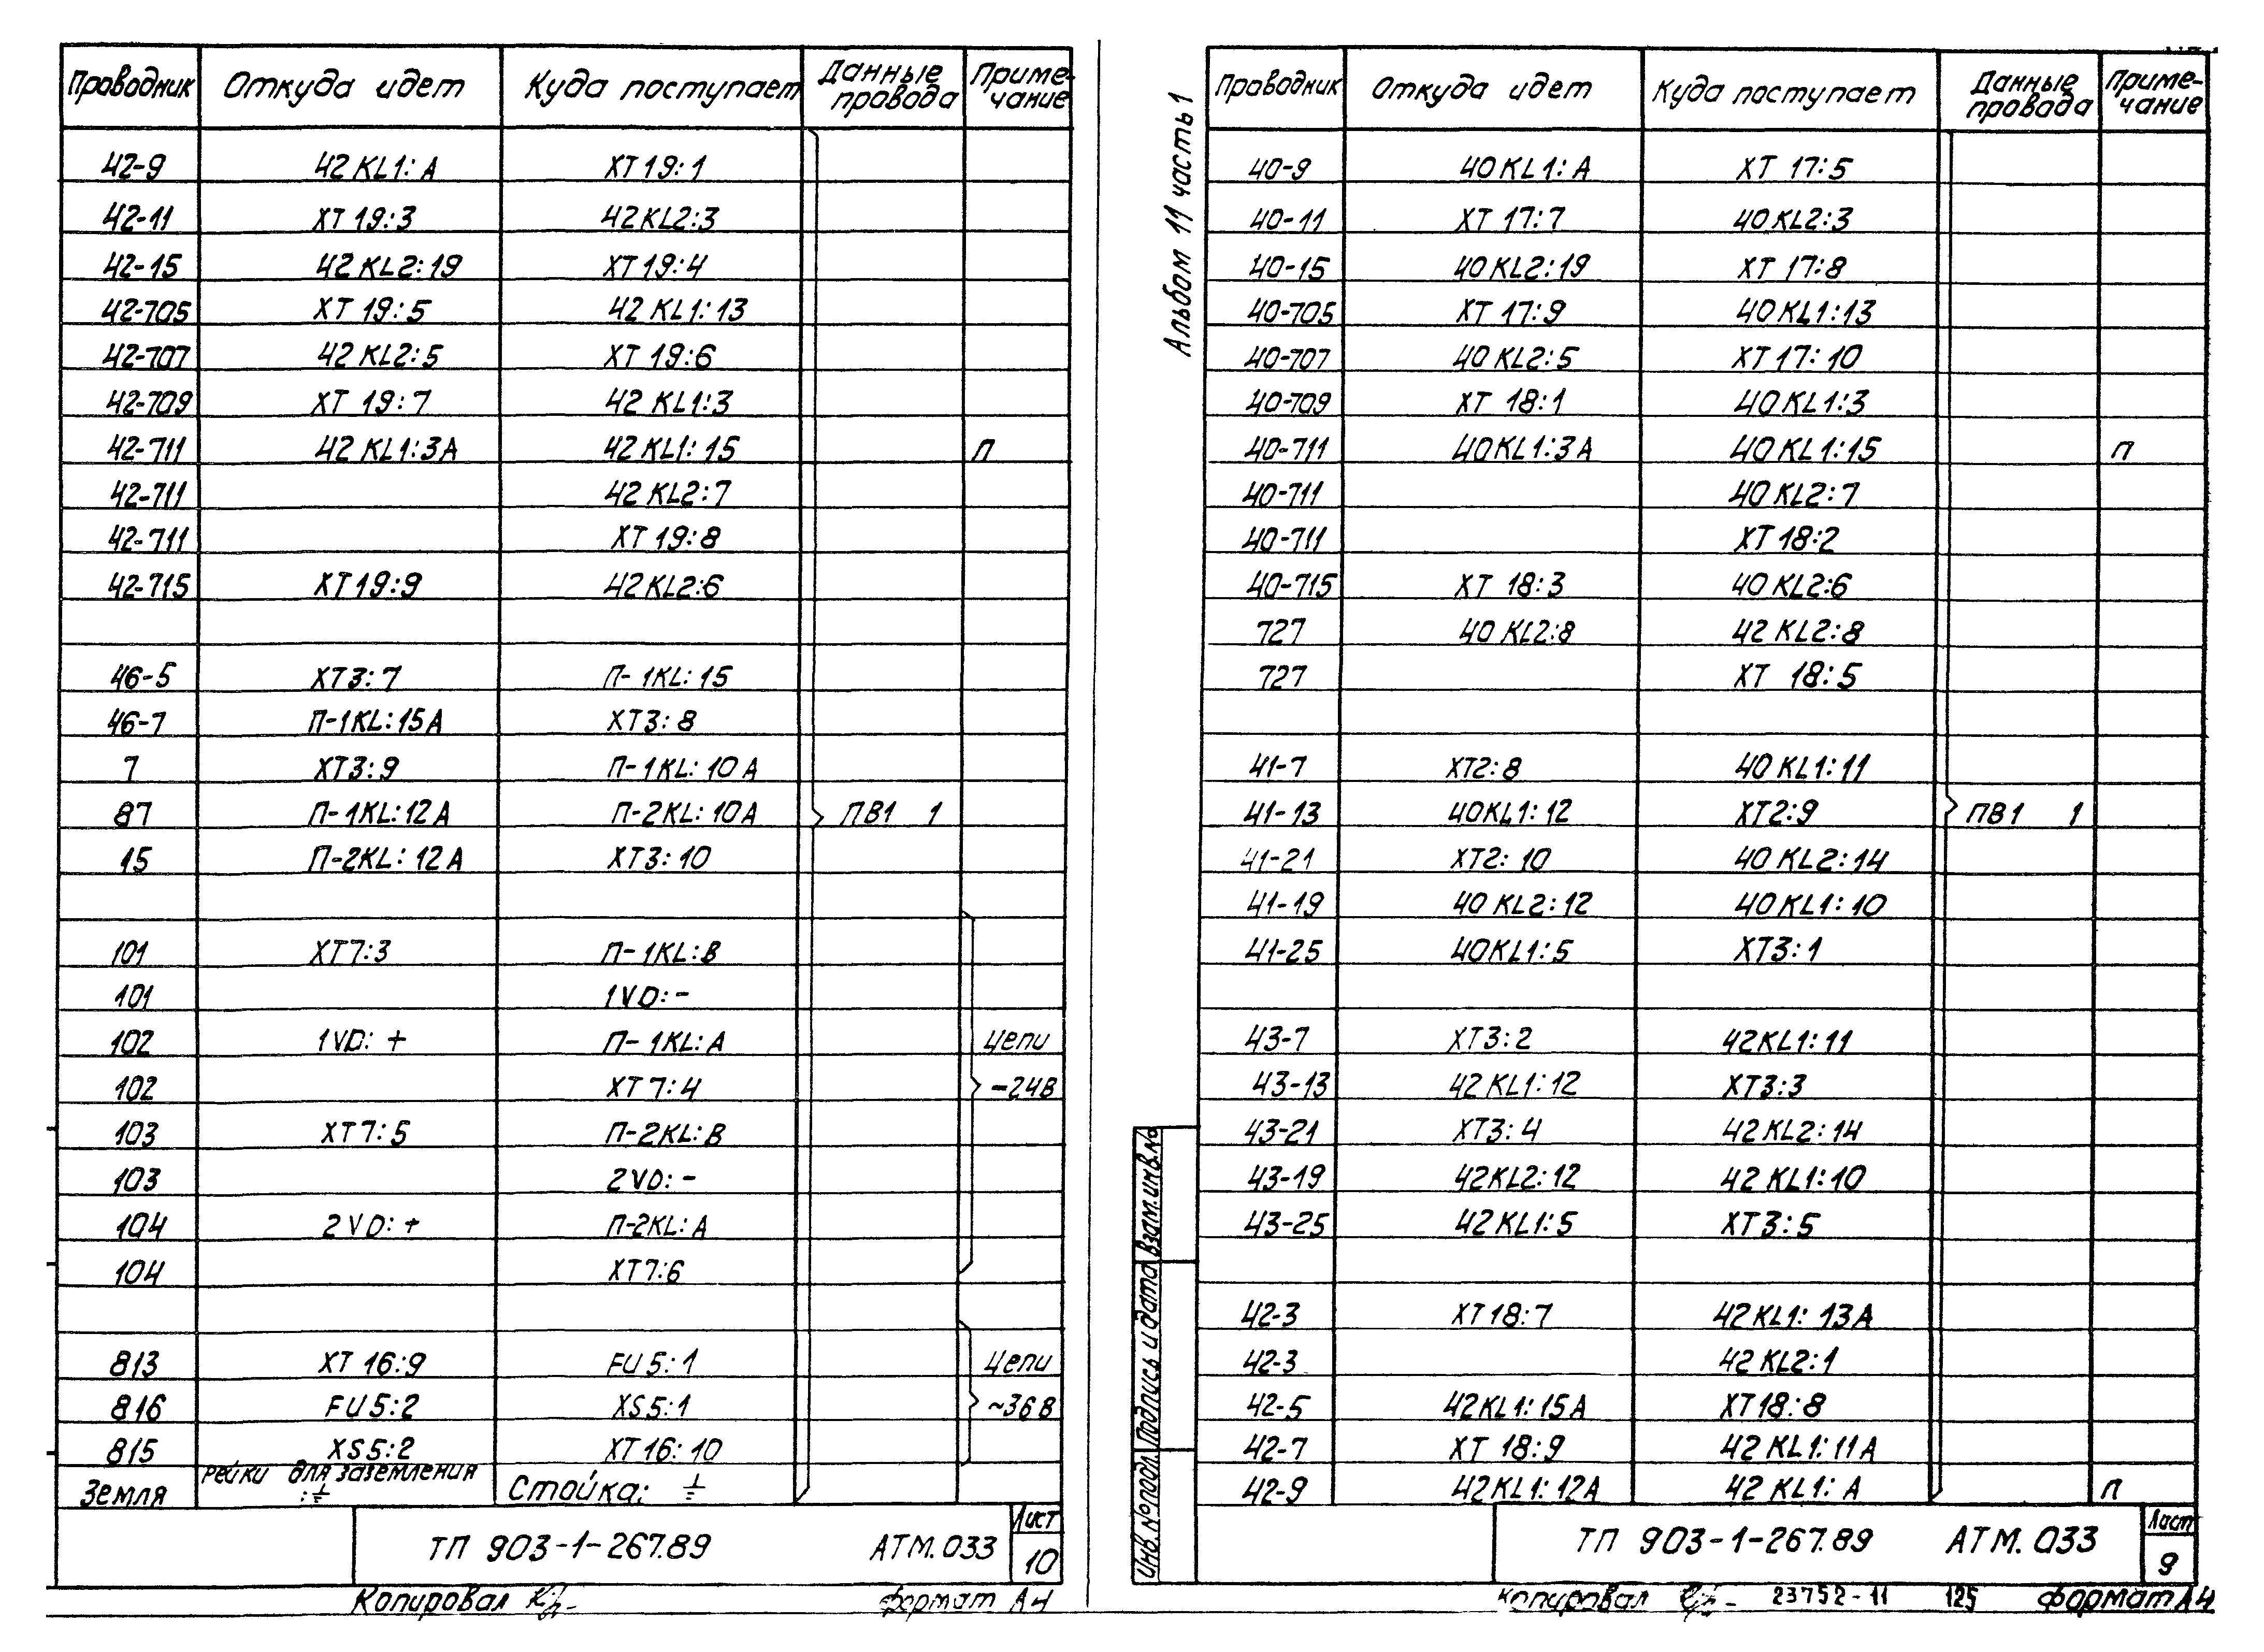 Проводник Откуда идет Куда поступает Данные провода Примечание
42-9 42KL1:А ХТ19:1
42-11 ХТ19:3 42KL2:3
42-15 42KL2:19 ХТ19:4
42-705 ХТ19:5 42KL1:13
42-707 42KL2:5 ХТ19:6
42-709 ХТ19:7 42KL1:3
42-711 42KL1:3А 42KL1:15 П
42-711 42KL2:7
42-711 ХТ19:8
42-715 ХТ19:9 42KL2:6
46-5 ХТ3:7 П-1KL:15
46-7 П-1KL:15А ХТ3:8
7 ХТ3:9 П-1KL:10А
87 П-1KL:12А П-2KL:10А ПВ1 1
15 П-2KL:12А ХТ3:10
101 ХТ7:3 П-1KL:В
101 1VD:-
102 1VD:+ П-1KL:А Цепи
102 ХТ7:4 -24В
103 ХТ7:5 П-2KL:В
103 2VD:-
104 2VD:+ П-2KL:А
104 ХТ7:6
813 ХТ16:9 FU5:1 Цепи
816 FU5:2 XS5:1 ~36В
815 XS5:2 ХТ16:10
Земля Рейки для заземления :⏚ Стойка: ⏚
ТП 903-1-267.89 АТМ.033 Лист 10
Копировал Формат А4
Альбом 11 часть 1
Проводник Откуда идет Куда поступает Данные провода Примечание
40-9 40KL1:А ХТ17:5
40-11 ХТ17:7 40KL2:3
40-15 40KL2:19 ХТ17:8
40-705 ХТ17:9 40KL1:13
40-707 40KL2:5 ХТ17:10
40-709 ХТ18:1 40KL1:3
40-711 40KL1:3А 40KL1:15 П
40-711 40KL2:7
40-711 ХТ18:2
40-715 ХТ18:3 40KL2:6
727 40KL2:8 42KL2:8
727 ХТ18:5
41-7 ХТ2:8 40KL1:11
41-13 40KL1:12 ХТ2:9 ПВ1 1
41-21 ХТ2:10 40KL2:14
41-19 40KL2:12 40KL1:10
41-25 40KL1:5 ХТ3:1
43-7 ХТ3:2 42KL1:11
43-13 42KL1:12 ХТ3:3
43-21 ХТ3:4 42KL2:14
43-19 42KL2:12 42KL1:10
43-25 42KL1:5 ХТ3:5
42-3 ХТ18:7 42KL1:13А
42-3 42KL2:1
42-5 42KL1:15А ХТ18:8
42-7 ХТ18:9 42KL1:11А
42-9 42KL1:12А 42KL1:А П
Инв.№подл. Подпись и дата Взам.инв.№
ТП 903-1-267.89 АТМ.033 Лист 9
Копировал 23752-11 125 Формат А4